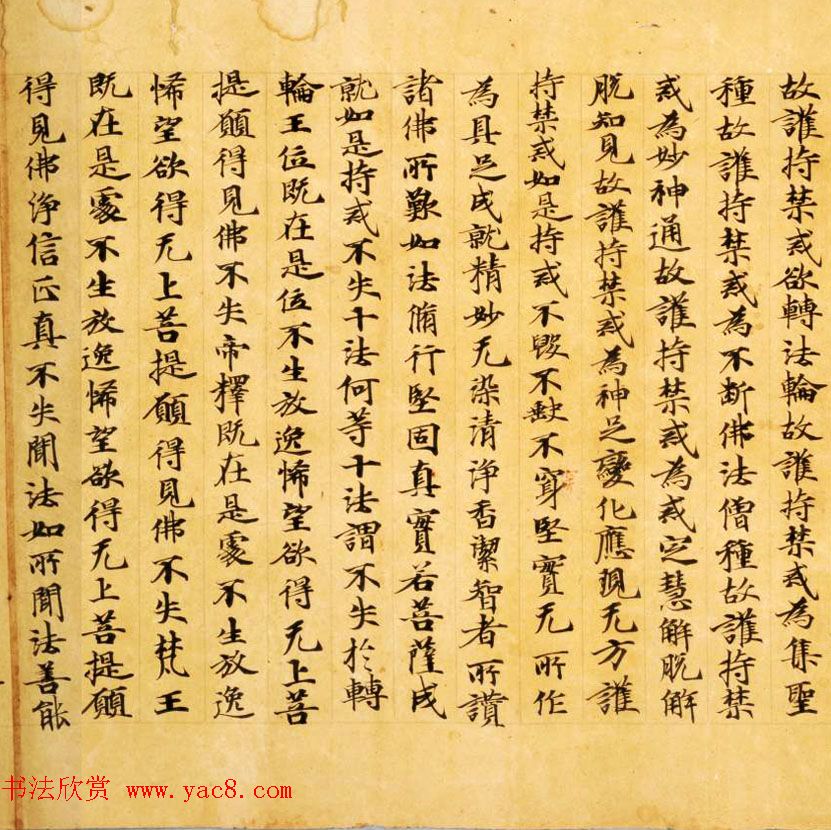 故護持禁戒欲轉法輪故護持禁戒為集聖
種故護持禁戒為不斷佛法僧種故護持禁
戒為妙神通故護持禁戒為戒定慧解脫解
脫知見故護持禁戒為神足變化應現无方護
持禁戒如是持戒不毀不缺不穿堅實无所作
為具足成就精妙无染清淨香潔智者所讚
諸佛所歎如法脩行堅固真實若菩薩成
就如是持戒不失十法何等十法謂不失於轉
輪王位既在是位不生放逸悕望欲得无上菩
提願得見佛不失帝釋既在是處不生放逸
悕望欲得无上菩提願得見佛不失梵王
既在是處不生放逸悕望欲得无上菩提願
得見佛淨信正真不失聞法如所聞法善能
书法欣赏 www.yac8.com